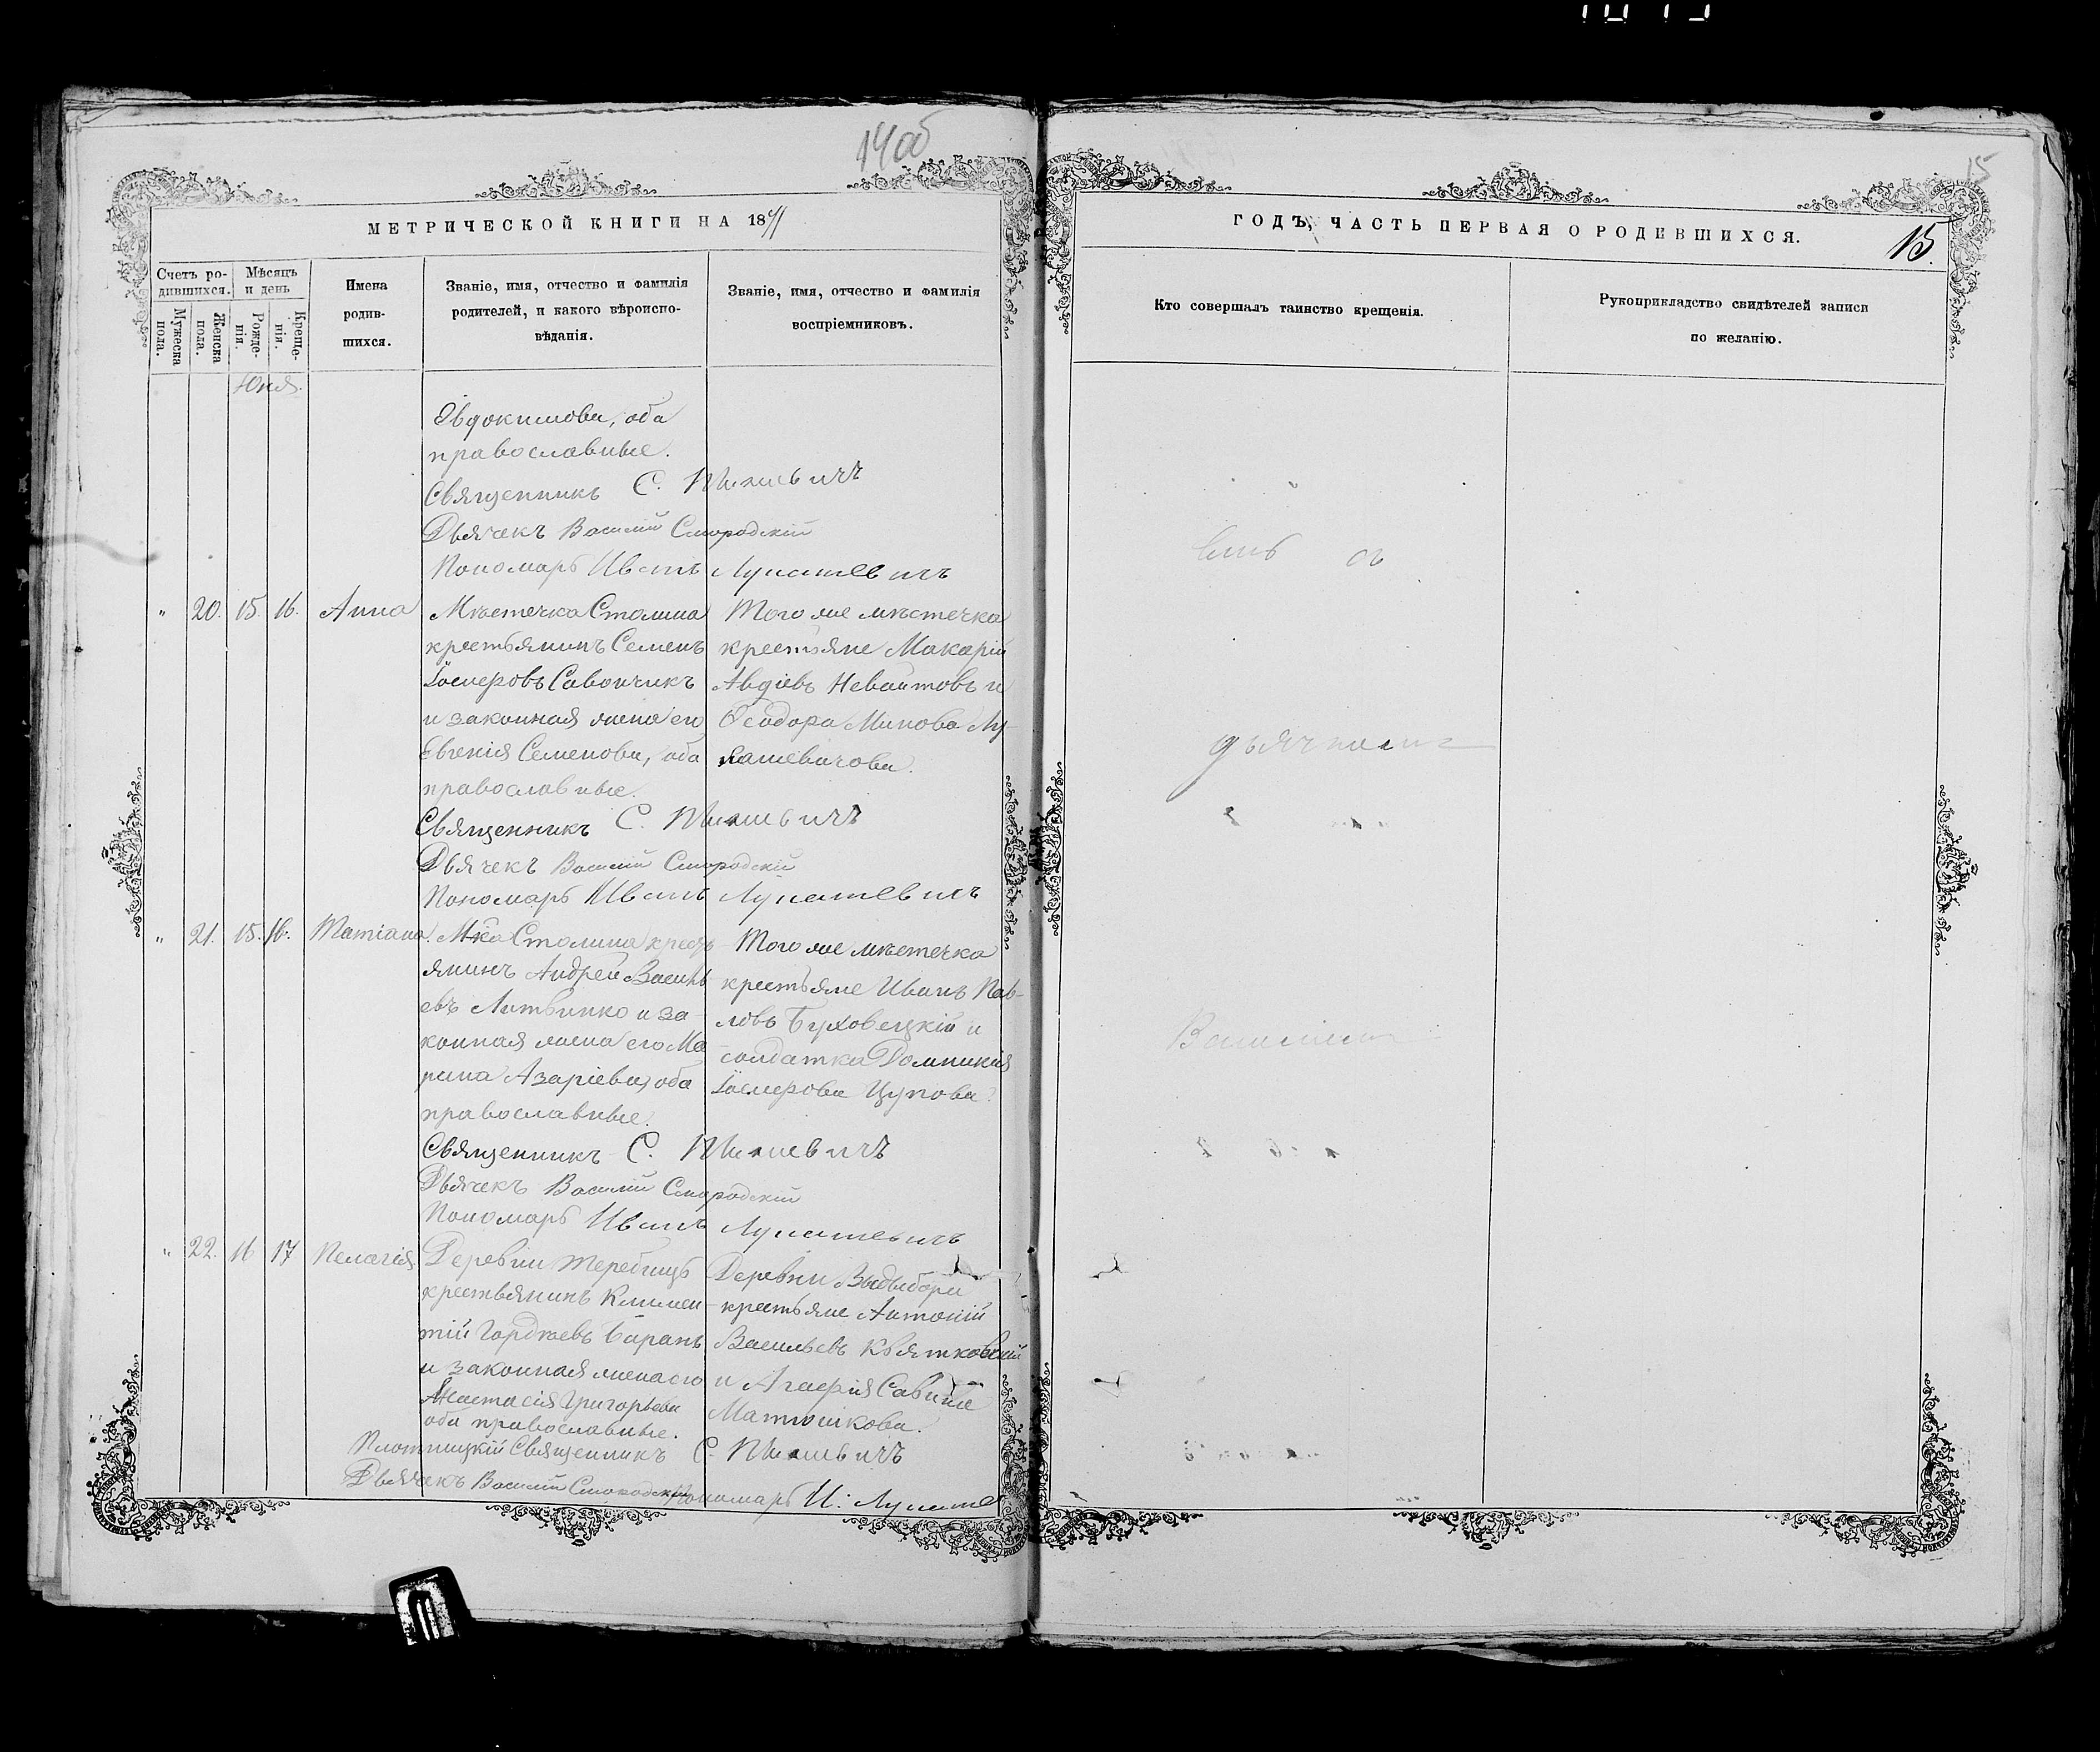 14 об
15
МЕТРИЧЕСКОЙ КНИГИ НА 18
ГОДЪ, ЧАСТЬ ПЕРВАЯ О РОДИВШИХСЯ.
15.
Счетъ ро-
дившихся.
Мѣсяцъ
и день
Мужеска
пола.
Женска
пола.
Рожде-
нія.
Креще-
нія.
Имена
родив-
шихся.
Званіе, имя, отчество и фамилія
родителей, и какого вѣроиспо-
вѣданія.
Званіе, имя, отчество и фамилія
воспріемниковъ.
Кто совершалъ таинство крещенія.
Рукоприкладство свидѣтелей записи
по желанію.
Юня.
Евдокимова, оба
православные.
Священникъ С.
Дьячекъ Василій Смородскій
Пономарь Иванъ Лукашевичъ
" 20. 15. 16. Анна
Мѣстечка Столина
крестьянинъ Семенъ
Іосифовъ Савончикъ
и законная жена его
Евгенія Семенова, оба
православные.
Того же мѣстечка
крестьяне Макарій
Авдіевъ Неваитовъ и
Ѳеодора Минова Лу-
кашевичова.
Священникъ С.
Дьячекъ Василій Смородскій
Пономарь Иванъ Лукашевичъ
" 21. 15. 16. Татіана.
М-ка Столина кресть-
янинъ Андрей Василь
евъ Литвинко и за-
конная жена его Ма
рина Азаріева, оба
православные.
Того же мѣстечка
крестьяне Иванъ Пав-
ловъ Буховецкій и
солдатка Домникія
Іосифова Цупова.
Священникъ С.
Дьячекъ Василій Смородскій
Пономарь Иванъ Лукашевичъ
" 22. 16 17 Пелагія
Деревни Теребищъ
крестьянинъ Климен-
тій Гордѣевъ Баранъ
и законная жена его
Анастасія Григорьева
оба православные.
Деревни
крестьяне Антоній
Васильевъ Квятковскій
и Агафія Савина
Матюшкова.
Плотницкій Священникъ С.
Дьячекъ Василій Смородскій Пономарь И. Лукаше